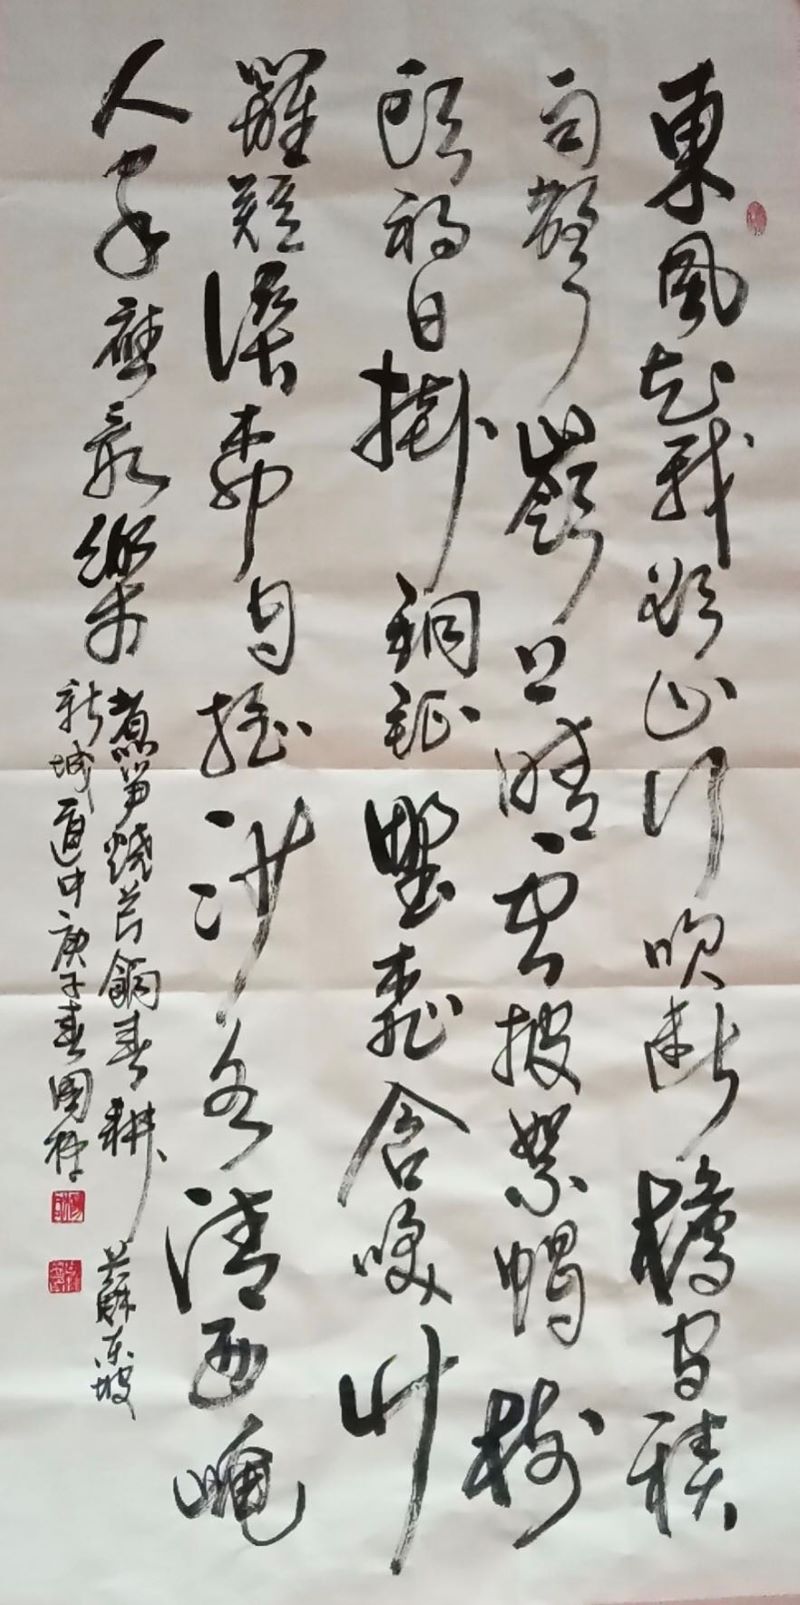 東風知我欲山行吹斷檐間積
雨聲嶺上晴雲披絮帽樹
頭初日掛銅鉦野桃含咲竹
籬短溪柳自搖沙水清西崦
人家應最樂
煮笋燒芹餉春耕 蘇東坡
新城道中庚子春國